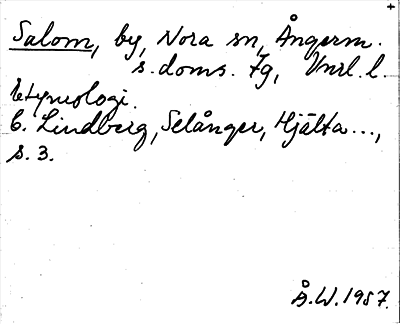 Salom, by, Nora sn, Ångerm.
s. doms. 7g, Vnrl. l.
Etymologi.
C. Lindberg, Selånger, Hjälta...,
s. 3.
Å.W. 1957.